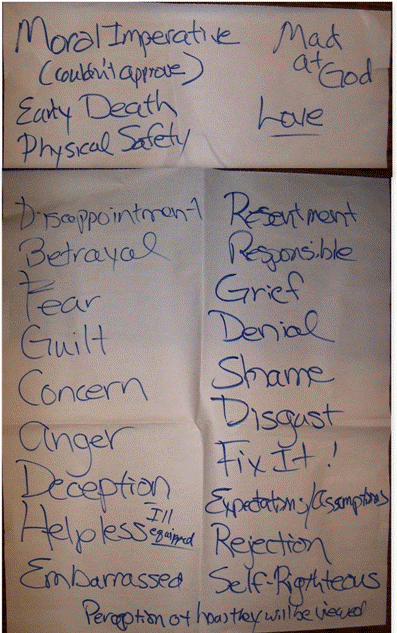 Moral Imperative
(couldn't approve)
Early Death
Physical Safety
Mad
at
God
Love
Disappointment
Betrayal
Fear
Guilt
Concern
anger
Deception
Helpless Ill equipped
Embarrassed
Resentment
Responsible
Grief
Denial
Shame
Disgust
Fix It!
Expectations/assumptions
Rejection
Self-Rigthteous
Perception of how they will be viewed